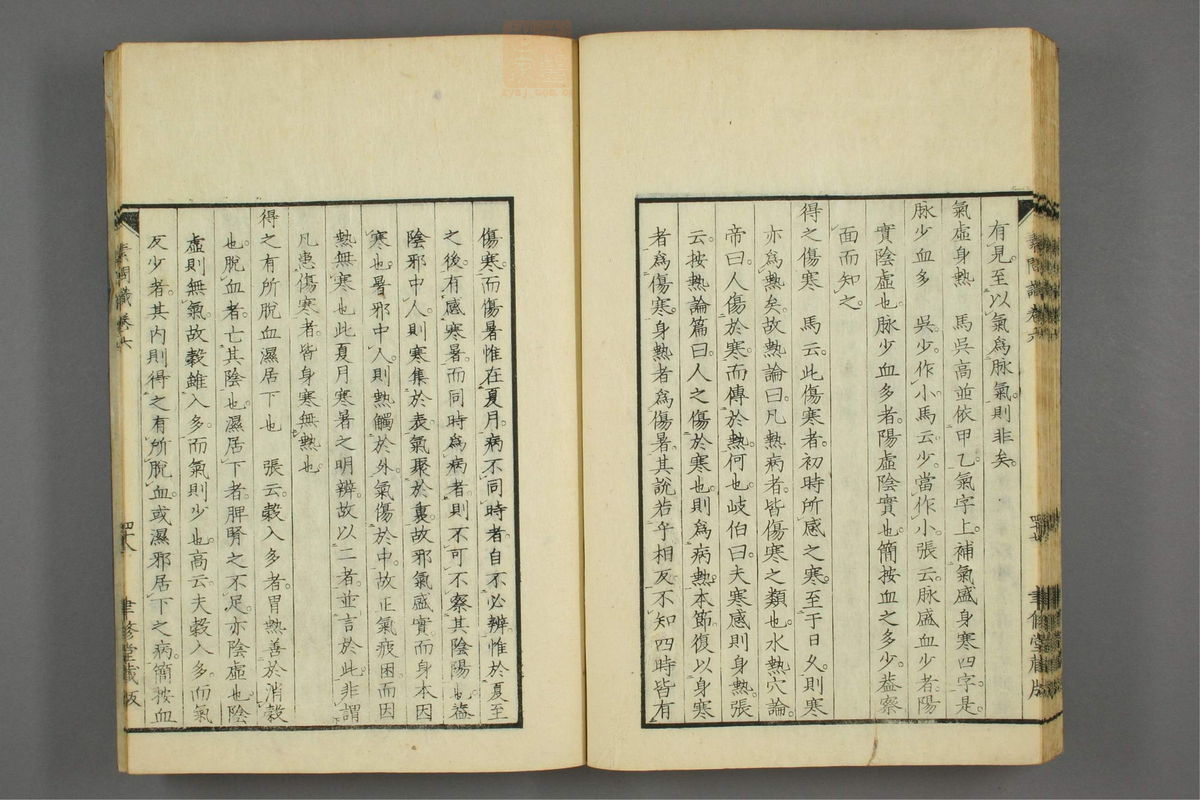 有見至以氣爲脉氣則非矣
氣虛身熱　馬吳高並依甲乙氣字上補氣盛身寒四字是
脉少血多　吳少作小馬云少當作小張云脉盛血少者陽
實陰虛也脉少血多者陽虛陰實也簡按血之多少蓋察
面而知之
得之傷寒　馬云此傷寒者初時所感之寒至于日久則寒
亦爲熱矣故熱論曰凡熱病者皆傷寒之類也水熱穴論
帝曰人傷於寒而傳於熱何也岐伯曰夫寒盛則身熱張
云按熱論篇曰人之傷於寒也則爲病熱本節復以身寒
者爲傷寒身熱者爲傷暑其說若乎相反不知四時皆有
素問識卷六
四十七
聿修堂藏版
傷寒而傷暑惟在夏月病不同時者自不必辨惟於夏至
之後有感寒暑而同時爲病者則不可不察其陰陽也蓋
陰邪中人則寒集於表氣聚於裏故邪氣盛實而身本因
寒也暑邪中人則熱觸於外氣傷於中故正氣疲困而因
熱無寒也此夏月寒暑之明辨故以二者並言於此非謂
凡患傷寒者皆身寒無熱也
得之有所脫血濕居下也　張云穀入多者胃熱善於消穀
也脫血者亡其陰也濕居下者脾腎之不足亦陰虛也陰
虛則無氣故穀雖入多而氣則少也高云夫穀入多而氣
反少者其內則得之有所脫血或濕邪居下之病簡按血
素問識卷六
四十八
聿修堂藏版